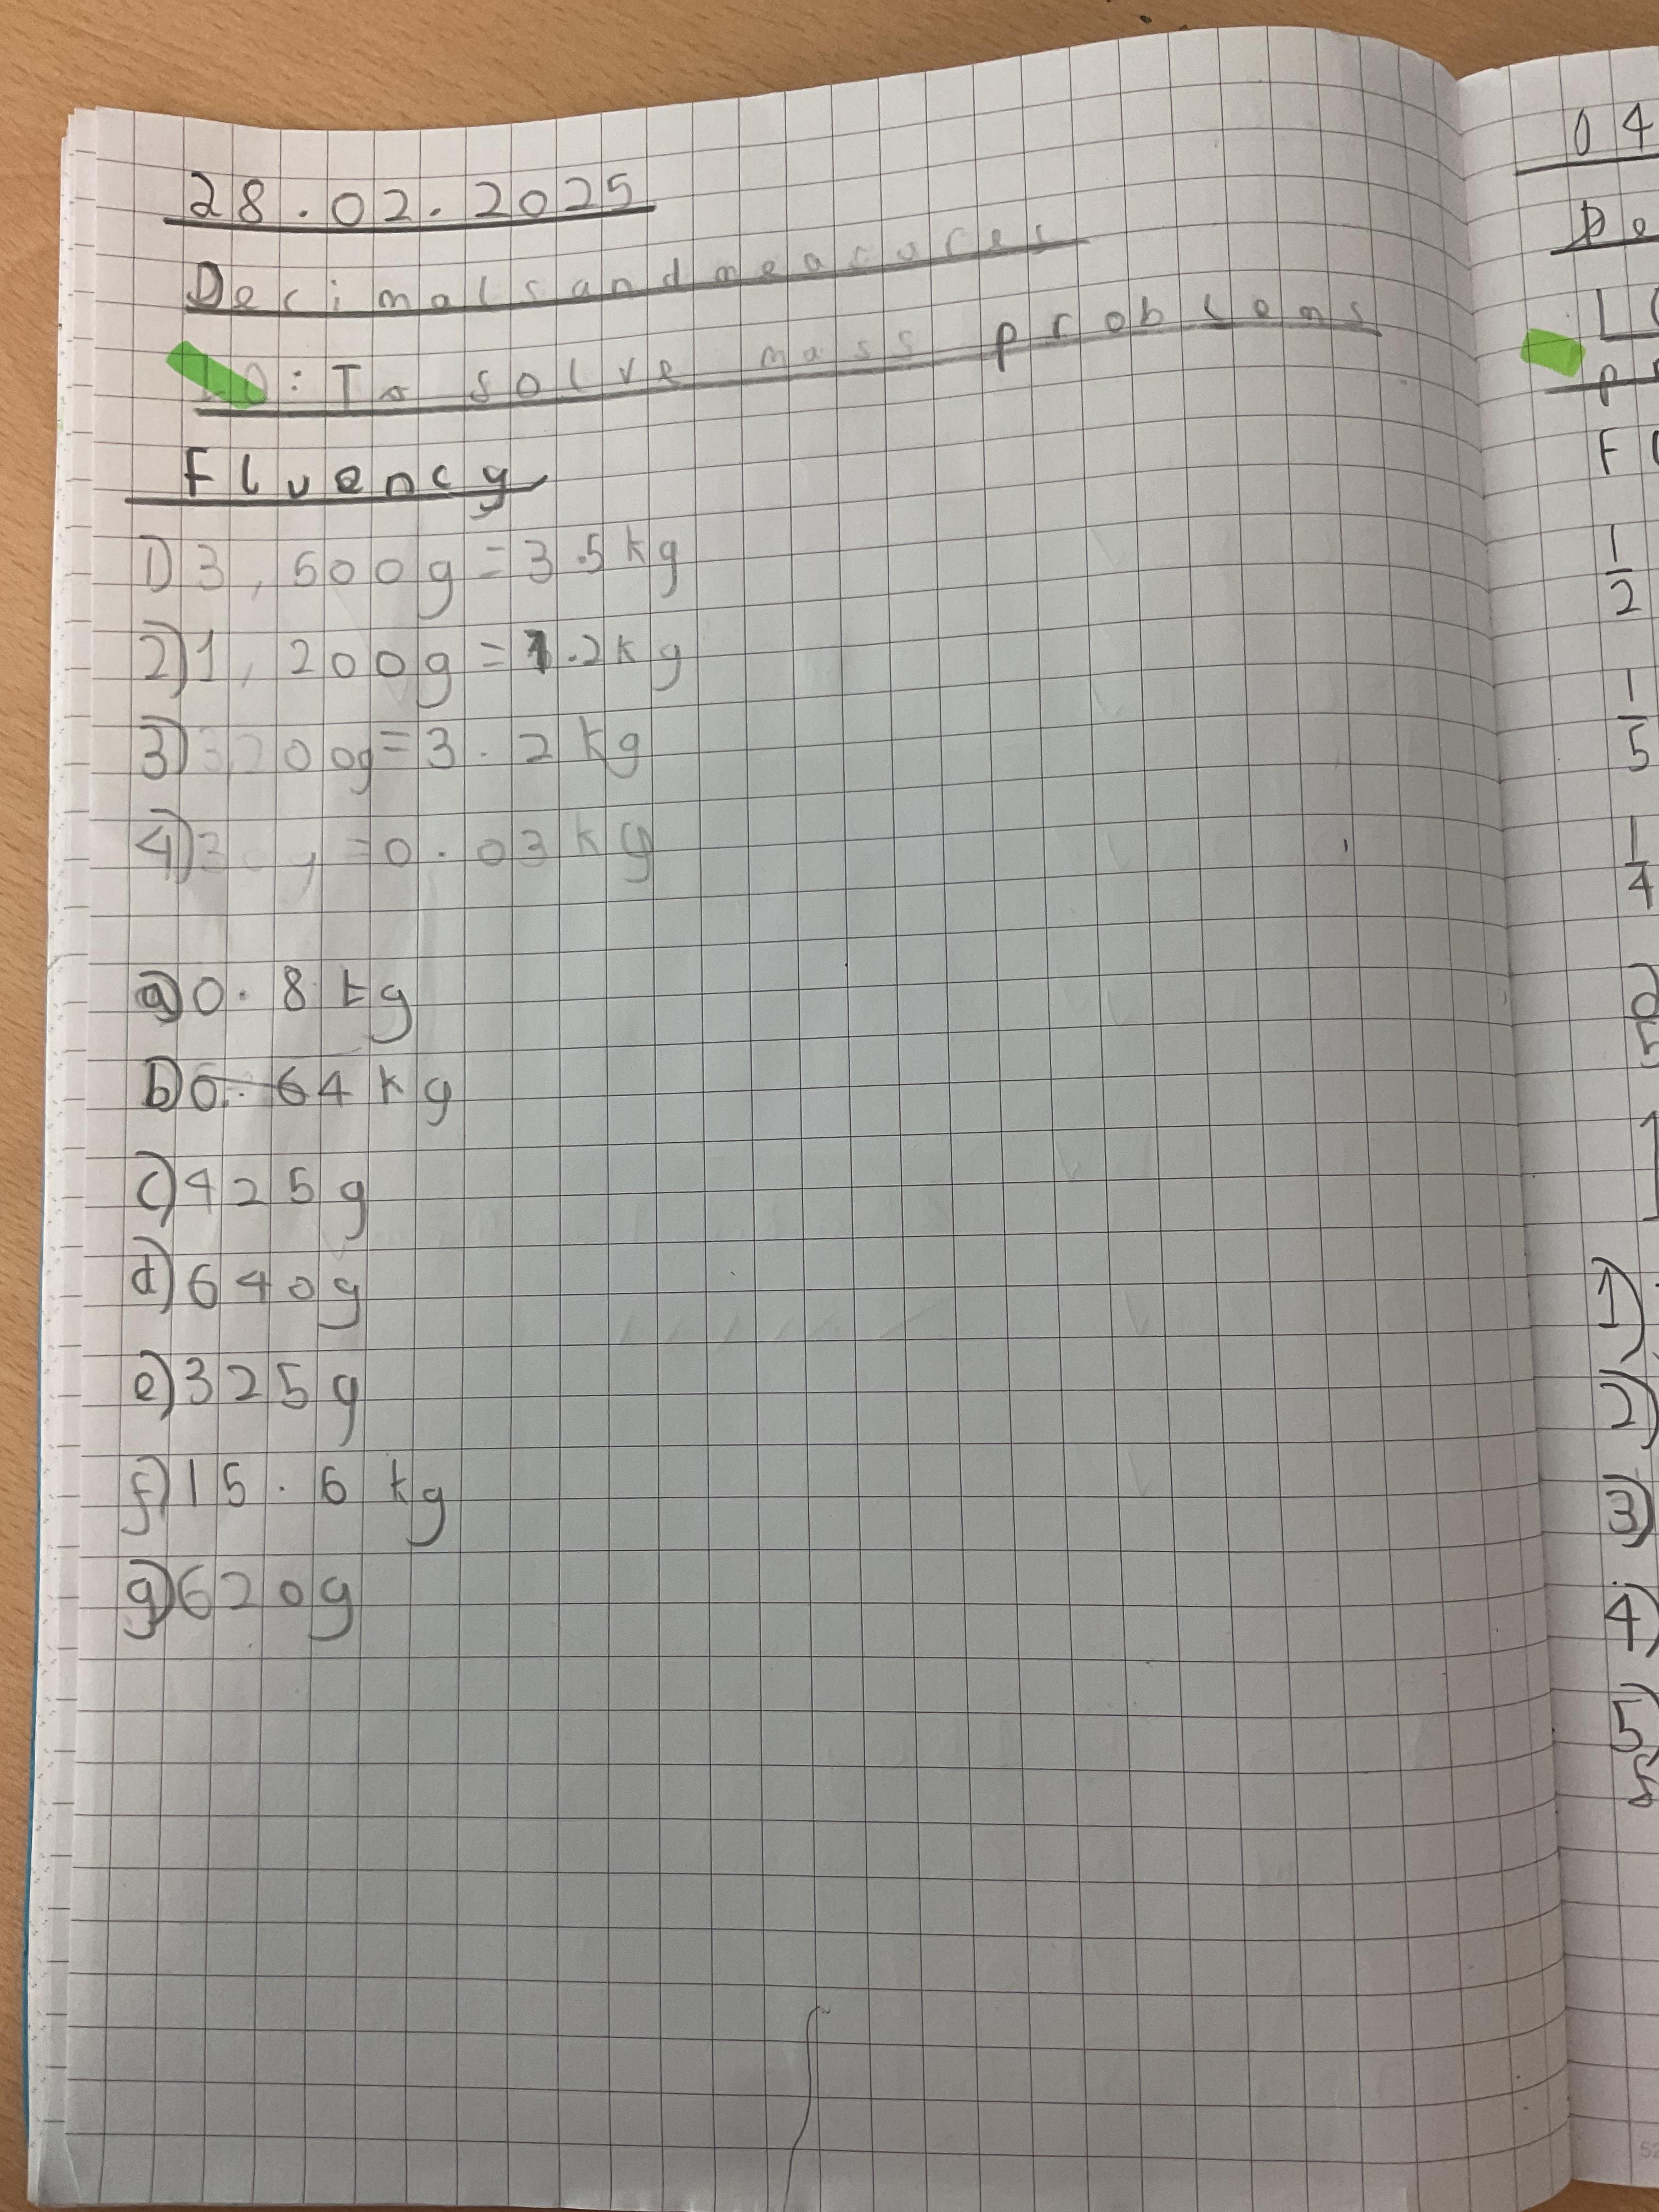 28.02.2025
Decimals and measures
LO: To solve mass problems
Fluency
1) 3,500g = 3.5kg
2) 1,200g = 1.2kg
3) 3200g = 3.2kg
4) 30g = 0.03kg
a) 0.8kg
b) 0.64kg
c) 425g
d) 640g
e) 325g
f) 15.6kg
g) 620g
04
De
L
p
Fl
1/2
1/5
1/4
2
5
1
1)
2)
3)
4)
5)
52